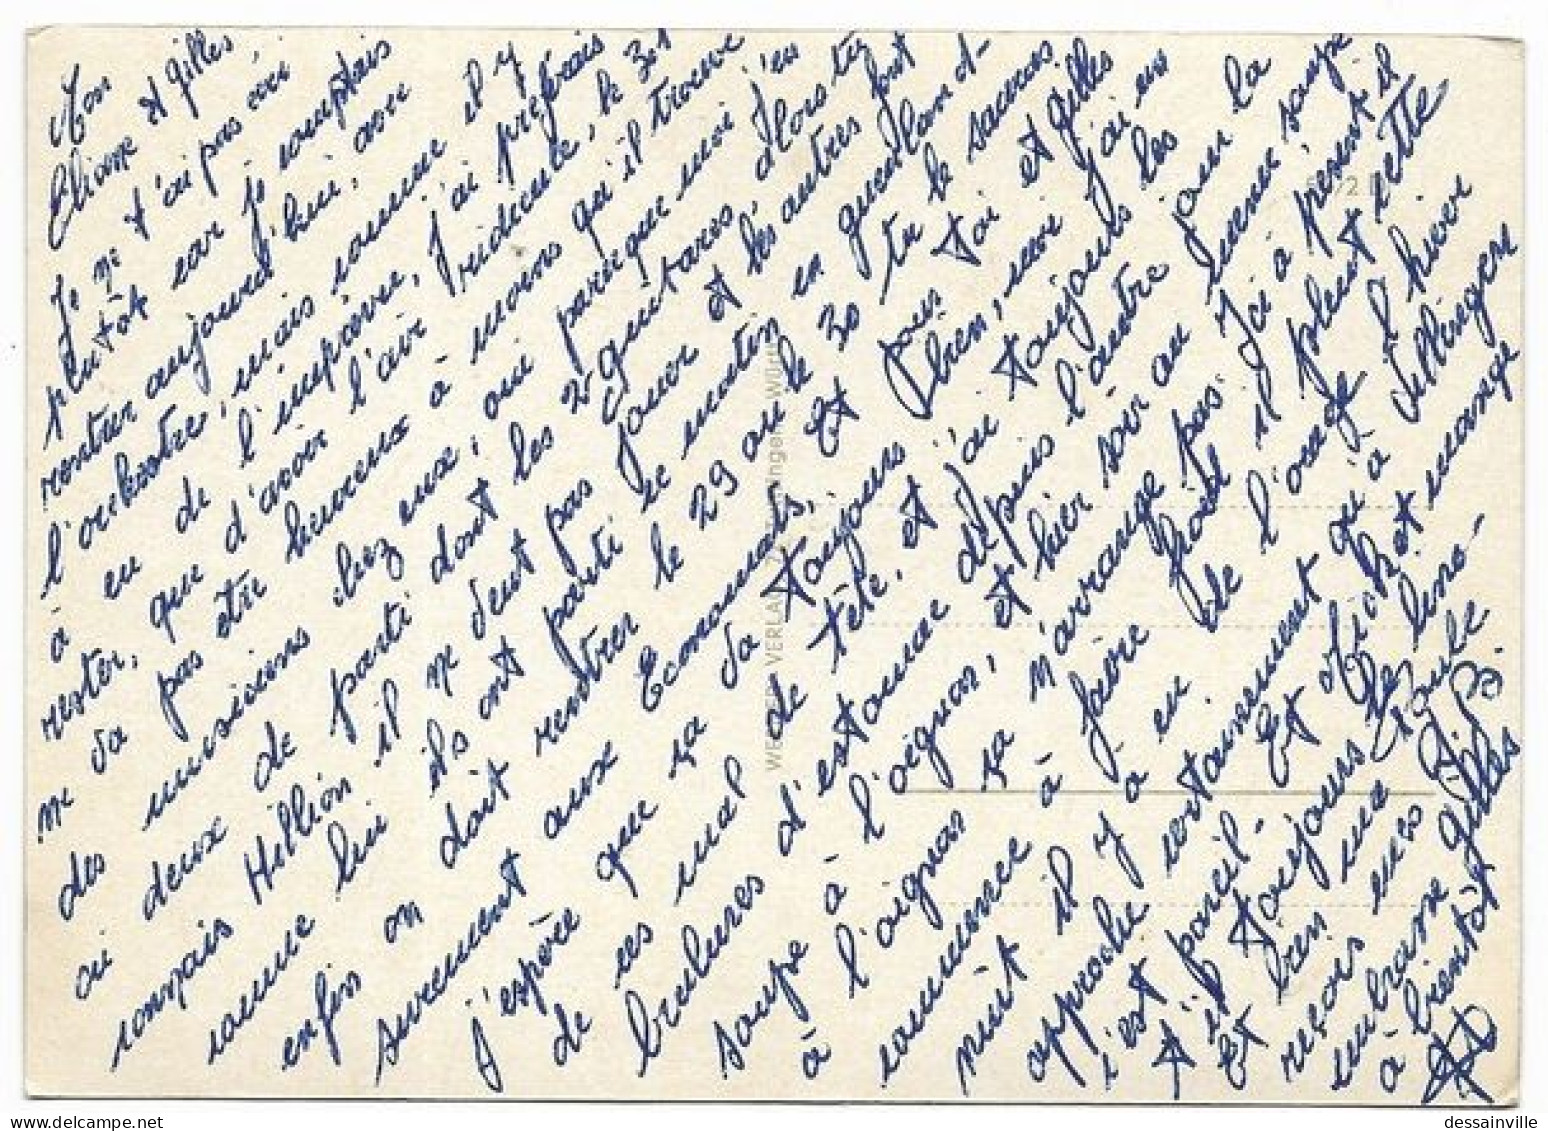 Mon
Eliane et Gilles
Je ne t'ai pas écri
plutôt car je comptais
rentrer aujourd'hui, avec
l'orchestre, mais comme il y
à eu de l'imprévue, j'ai préfrais
rester, que d'avoir l'air ridicule, le 3.1
ne va pas être heureux à moins qu'il trouve
des musiciens chez eux, oui parceque moi j'en
ai deux de parti dont les 2 guitares, alors tu
conçais Hellion il ne veut pas jouer et les autres font
comme lui ils ont parti ce matin en gueuland-
enfin on doit rentrer le 29 ou le 30 tu le sauras
surement aux Economats, Et pous toi et Gilles
j'espère que ça va toujours bien, moi j'ai eu
de ces mal de tête, et j'ai toujours les
brulures d'estomac depuis l'autre jour la
soupe à l'oignon, et hier soir au menu, soupe
à l'oignon ça n'arrange pas. Ici à présent il
commence à faire froid il pleut cette
nuit il y à eu de l'orage l'hiver
approche certainement qu'à Uttingen
c'est pareil- Et Michet mange
t'il toujours Le lino-
Et bien ma Poule
reçois mes
embrasse Gilles
à bientôt Gilles
WE VERLA ingen Württ
5 2
dessainville